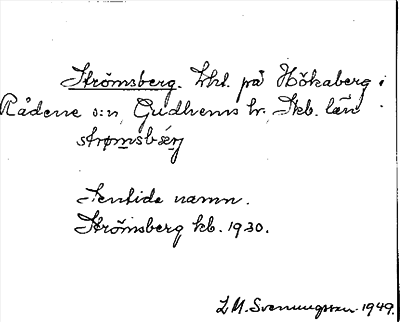 Strömsberg. Lht. på Hökaberg i
Rådene s:n, Gudhems hr. Skb. län
strømsbærj
Sentida namn.
Strömsberg kb. 1930.
L M. Svenungsson 1949.